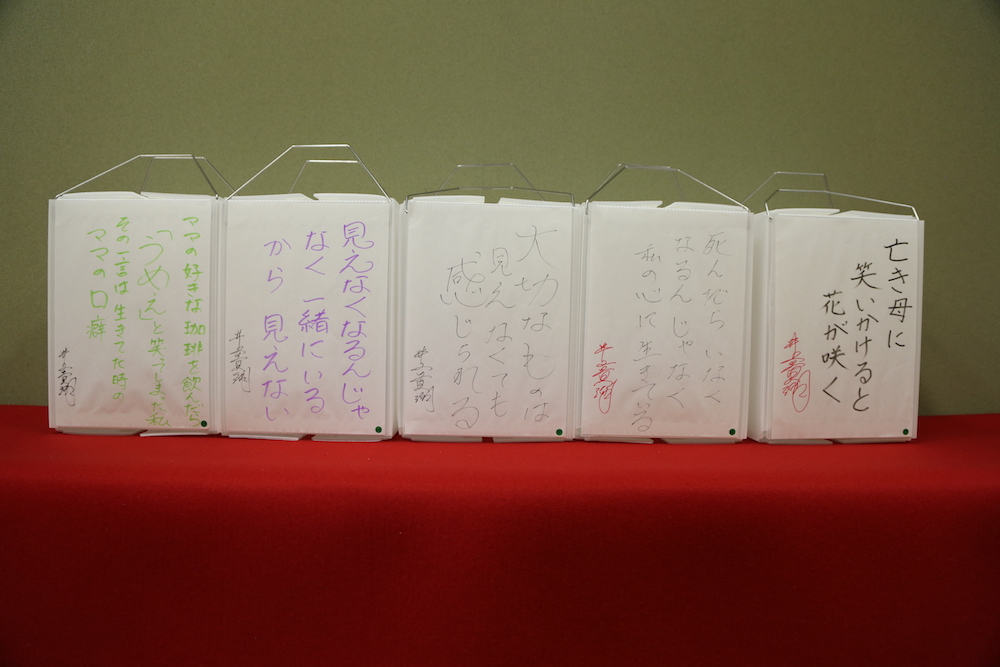 亡き母に
笑いかけると
花が咲く
死んだら いなく
なるんじゃなく
私の心に生きている
大切なものは
見えなくても
感じられる
見えなくなるんじゃ
なく 一緒にいる
から 見えない
ママの好きな珈琲を飲んだら
「うめえ」と笑ってしまった私
その一言は生きてた時の
ママの口癖